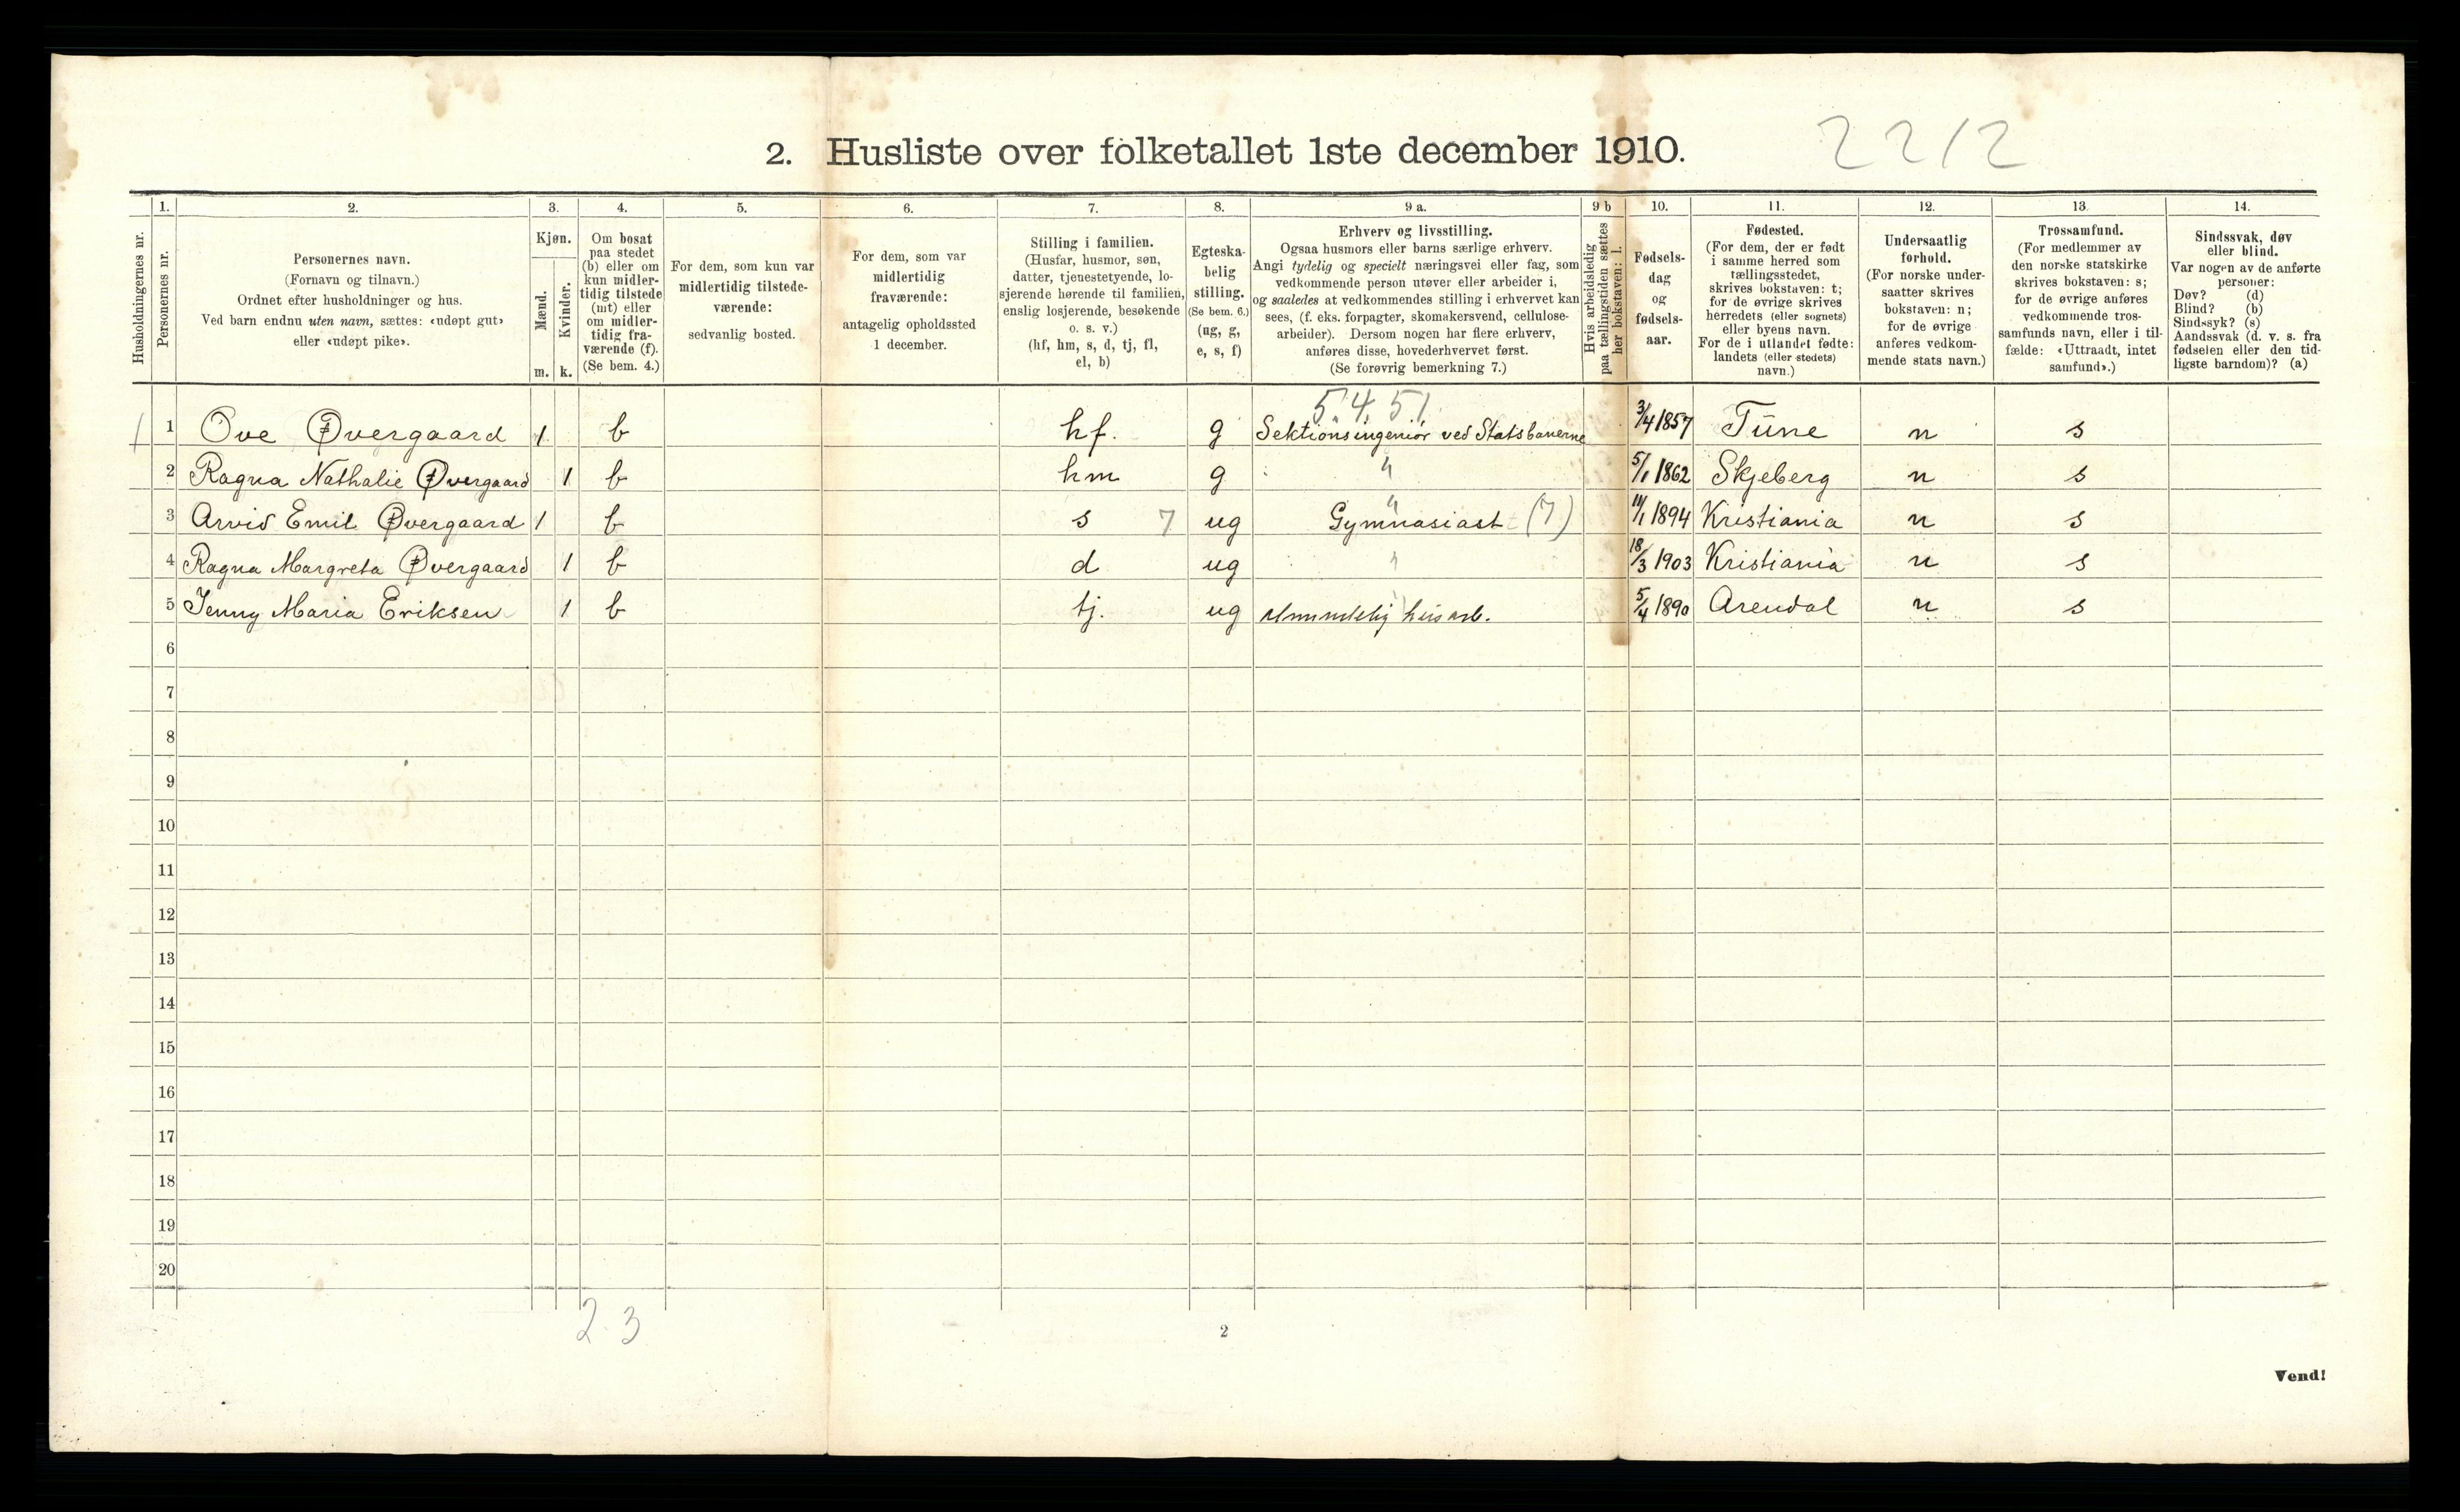 2. Husliste over folketallet 1ste december 1910.
2212
1. 2. 3. 4. 5. 6. 7. 8. 9 a. 9 b 10. 11. 12. 13. 14.
Husholdningernes nr.
Personernes nr.
Personernes navn.
(Fornavn og tilnavn.)
Ordnet efter husholdninger og hus.
Ved barn endnu uten navn, sættes: «udøpt gut»
eller «udøpt pike».
Kjøn.
Mænd.
Kvinder.
m. k.
Om bosat
paa stedet
(b) eller om
kun midler-
tidig tilstede
(mt) eller
om midler-
tidig fra-
værende (f).
(Se bem. 4.)
For dem, som kun var
midlertidig tilstede-
værende:
sedvanlig bosted.
For dem, som var
midlertidig
fraværende:
antagelig opholdssted
1 december.
Stilling i familien.
(Husfar, husmor, søn,
datter, tjenestetyende, lo-
sjerende hørende til familien,
enslig losjerende, besøkende
o. s. v.)
(hf, hm, s, d, tj, fl,
el, b)
Egteska-
belig
stilling.
(Se bem. 6.)
(ug, g,
e, s, f)
Erhverv og livsstilling.
Ogsaa husmors eller barns særlige erhverv.
Angi tydelig og specielt næringsvei eller fag, som
vedkommende person utøver eller arbeider i,
og saaledes at vedkommendes stilling i erhvervet kan
sees, (f. eks. forpagter, skomakersvend, cellulose-
arbeider). Dersom nogen har flere erhverv,
anføres disse, hovederhvervet først.
(Se forøvrig bemerkning 7.)
Hvis arbeidsledig
paa tællingstiden sættes
her bokstaven: l.
Fødsels-
dag
og
fødsels-
aar.
Fødested.
(For dem, der er født
i samme herred som
tællingsstedet,
skrives bokstaven: t;
for de øvrige skrives
herredets (eller sognets)
eller byens navn.
For de i utlandet fødte:
landets (eller stedets)
navn.)
Undersaatlig
forhold.
(For norske under-
saatter skrives
bokstaven: n;
for de øvrige
anføres vedkom-
mende stats navn.)
Trossamfund.
(For medlemmer av
den norske statskirke
skrives bokstaven: s;
for de øvrige anføres
vedkommende tros-
samfunds navn, eller i til-
fælde: «Uttraadt, intet
samfund».)
Sindssvak, døv
eller blind.
Var nogen av de anførte
personer:
Døv? (d)
Blind? (b)
Sindssyk? (s)
Aandssvak (d. v. s. fra
fødselen eller den tid-
ligste barndom)? (a)
5.4.51
1 1 Ove Øvergaard 1 b hf. g Sektionsingeniør ved Statsbanerne 3/4 1857 Tune n s
2 Ragna Nathalie Øvergaard 1 b hm g " 5/1 1862 Skjeberg n s
3 Arvid Emil Øvergaard 1 b s 7 ug Gymnasiast (7) 11/1 1894 Kristiania n s
4 Ragna Margreta Øvergaard 1 b d ug " 18/3 1903 Kristiania n s
5 Jenny Maria Eriksen 1 b tj. ug Almindelig husarb. 5/4 1890 Arendal n s
6
7
8
9
10
11
12
13
14
15
16
17
18
19
20
2 3
2
Vend!